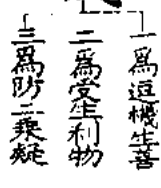 一爲逗機生善
二爲受生利物
三爲防二乗疑